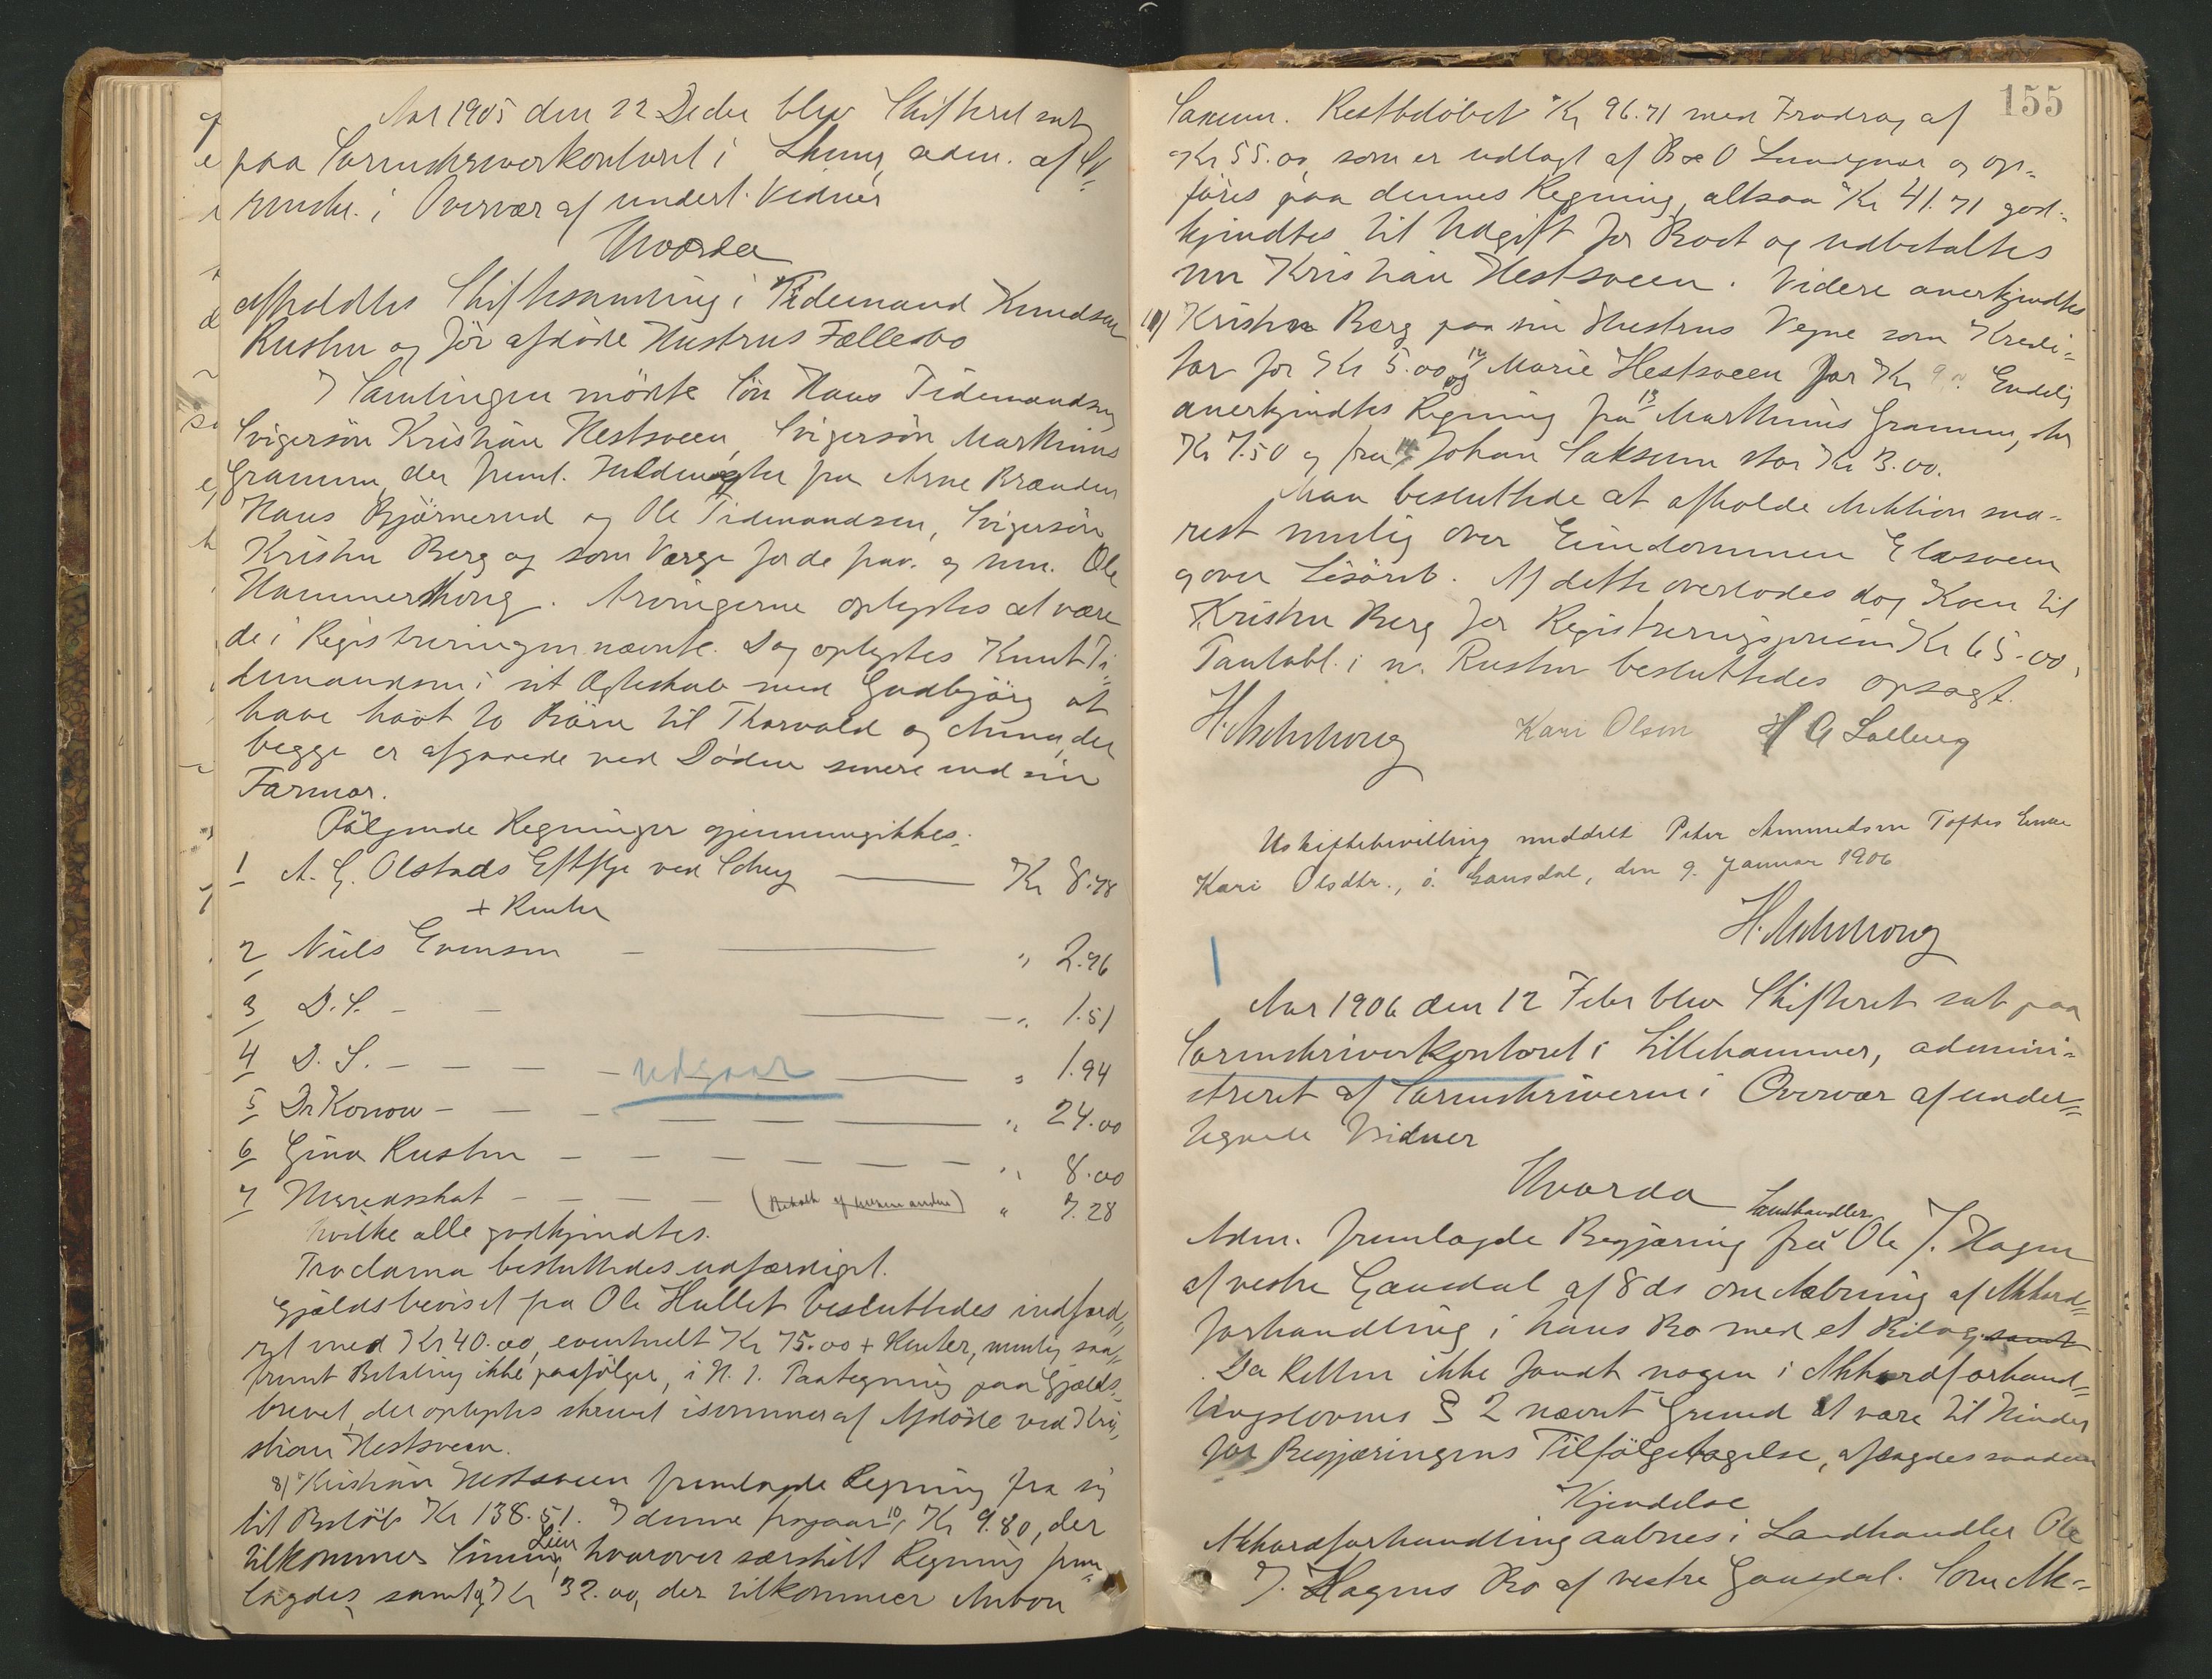 Aar 1905 den 22 Decbr blev Skifteret sat
paa Sorenskriverkontoret i Lhmr, adm. af So-
renskr. i Overvær af undert. Vidner
Hvorda
afholdtes Skiftesamling i Tidemand Knudsen
Rusten og før afdøde Hustrus Fællesbo
I Samlingen mødte Søn Hans Tidemandsen
Svigersøn Kristian Hestsveen, Svigersøn Marthinus
Gramm, der freml. Fuldmagter fra Arne Brænden
Hans Bjørnerud og Ole Tidemandsen, Svigersøn
Kristen Berg og som Værge for de frav. og um. Ole
Hammershong. Arvingerne oplystes at være
de i Registreringen nævnte. Dog oplystes Knut Ti-
demandsen i sit Ægteskab med Gudbjørg at
have havt to Børn til Thorvald og Anna, der
begge er afgaaede ved Døden senere end sin
Farmor.
Følgende Regninger gjennemgikkes:
1 A. G. Olstads Eftflge ved Schey Kr 8.78
+ Renter
2 Niels Evensen - " 2.76
3 D. S. - - - " 1.51
4 D. S. - - - - udgaar " 1.94
5 Dr Konow - - - - - - " 24.00
6 Gina Rusten - - - - - - " 8.00
7 Herredsskat - - - - (Betalt af Enkemanden) " 7.28
hvilke alle godkjendtes.
Proclama besluttedes udfærdiget.
Gjældsbeviset fra Ole Hullet besluttedes indford-
ret med Kr 40.00, eventuelt Kr 75.00 + Renter, nemlig saa-
fremt Betaling ikke paafølger, i H. t. Paategning paa Gjælds-
brevet, der oplystes skrevet isommer af Afdøde ved Kri-
stian Hestsveen.
8) Kristian Hestsveen fremlagde Regning fra sig
til Beløb Kr 138.51. I denne fragaar 10/ Kr 9.80, der
tilkommer Simen Lien, hvorover særskilt Regning frem-
lagdes, samt 9/ Kr 32.00, der tilkommer Anton
155
Saxum. Restbeløbet Kr 96.71 med Fradrag af
Kr 55.00, som er udlagt af B & O Lundgaar og op-
føres paa dennes Regning, altsaa Kr 41.71 god-
kjendtes til Udgift for Boet og udbetaltes
nu Kristian Hestsveen. Videre anerkjendtes
11) Kristen Berg paa sin Hustrus Vegne som Kredi-
tor for Kr 5.00 og 12/ Marie Hestsveen for Kr 9.00. Endelig
anerkjendtes Regning fra 13/ Marthinus Gramm, stor
Kr 7.50 og fra 14/ Johan Saksum stor Kr 3.00.
Man besluttede at afholde Auktion sna-
rest mulig over Eiendommen Elvesveen
og over Løsøret. Af dette overlodes dog Koen til
Kristen Berg for Registreringsprisen Kr 65.00.
Pantobl. i n. Rusten besluttedes opsagt.
H. Aschehoug Kari Olsen H G Solberg
Uskiftebevilling meddelt Peter Ammundsen Toftes Enke
Kari Olsdtr., Ø. Gausdal, den 9. Januar 1906
H. Aschehoug
Aar 1906 den 12 Febr blev Skifteret sat paa
Sorenskriverkontoret i Lillehammer, admini-
streret af Sorenskriveren i Overvær af under-
tegnede Vidner
Hvorda
Adm. fremlagde Begjæring fra Landhandler Ole J. Hagen
af vestre Gausdal af 8 ds om Aabning af Akkord-
forhandling i hans Bo med et Bilag samt
Da Retten ikke fandt nogen i Akkordforhand-
lingslovens § 2 nævnt Grund at være til Hinder
for Begjæringens Tilfølgetagelse, afsagdes saadan
Kjendelse
Akkordforhandling aabnes i Landhandler Ole
J. Hagens Bo af vestre Gausdal. Som Ak-